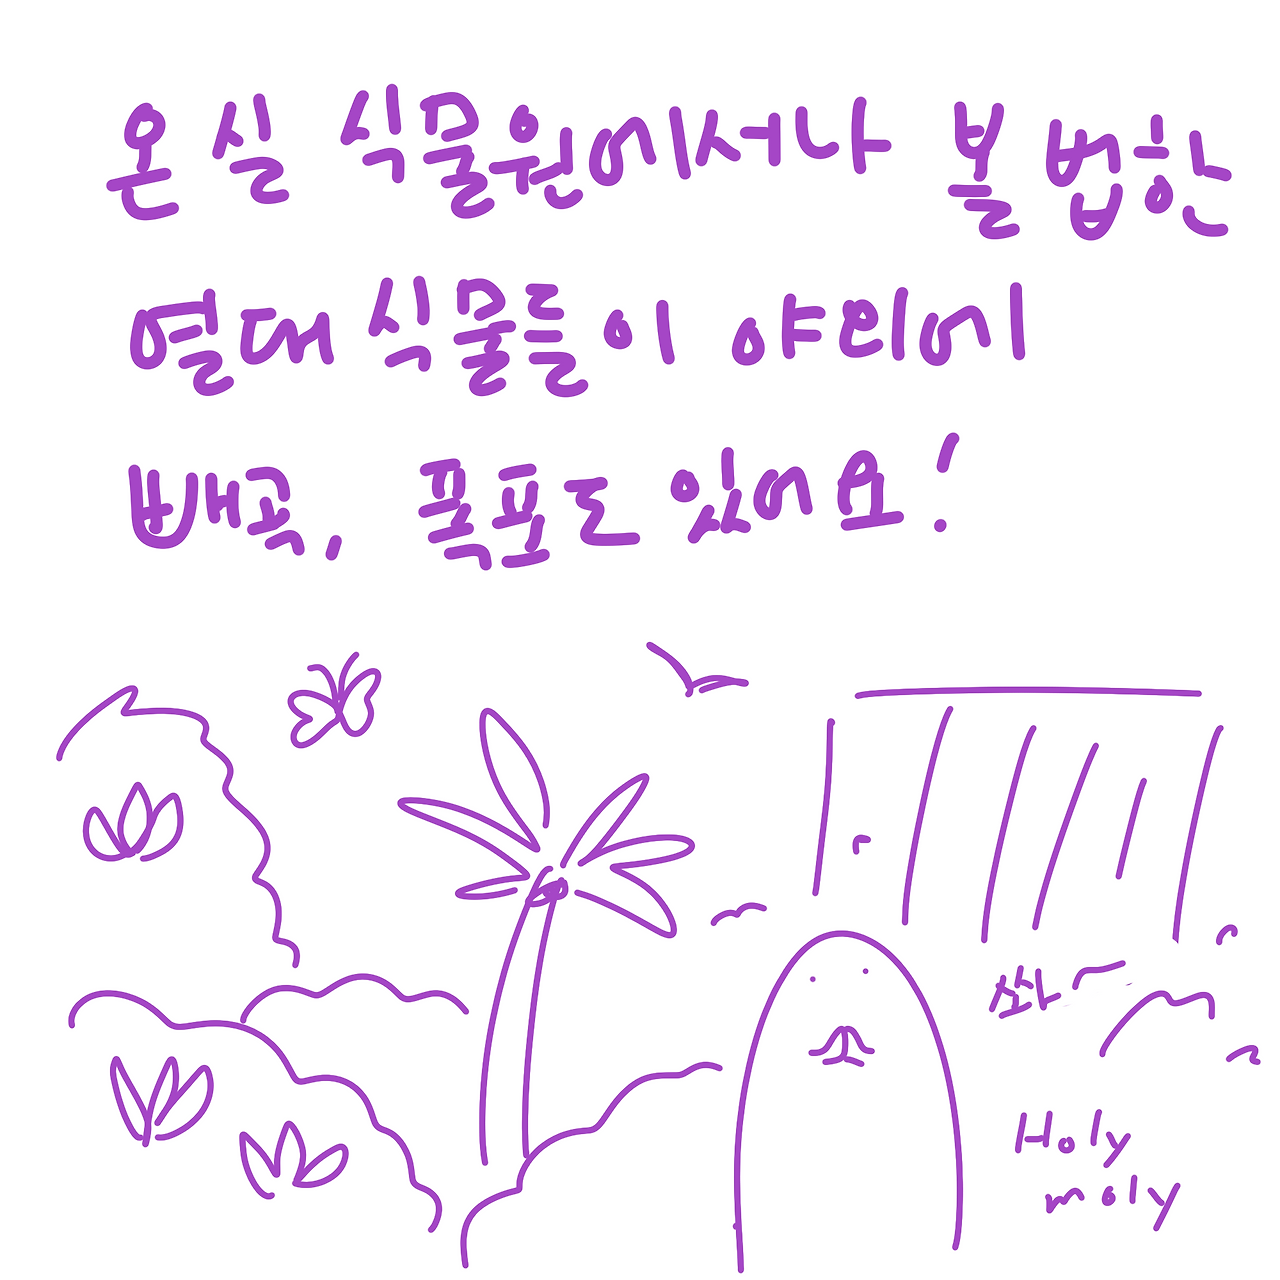 온실 식물원에서나 볼 법한
열대 식물들이 야외에
빼곡, 폭포도 있어요!
쏴~
Holy
moly